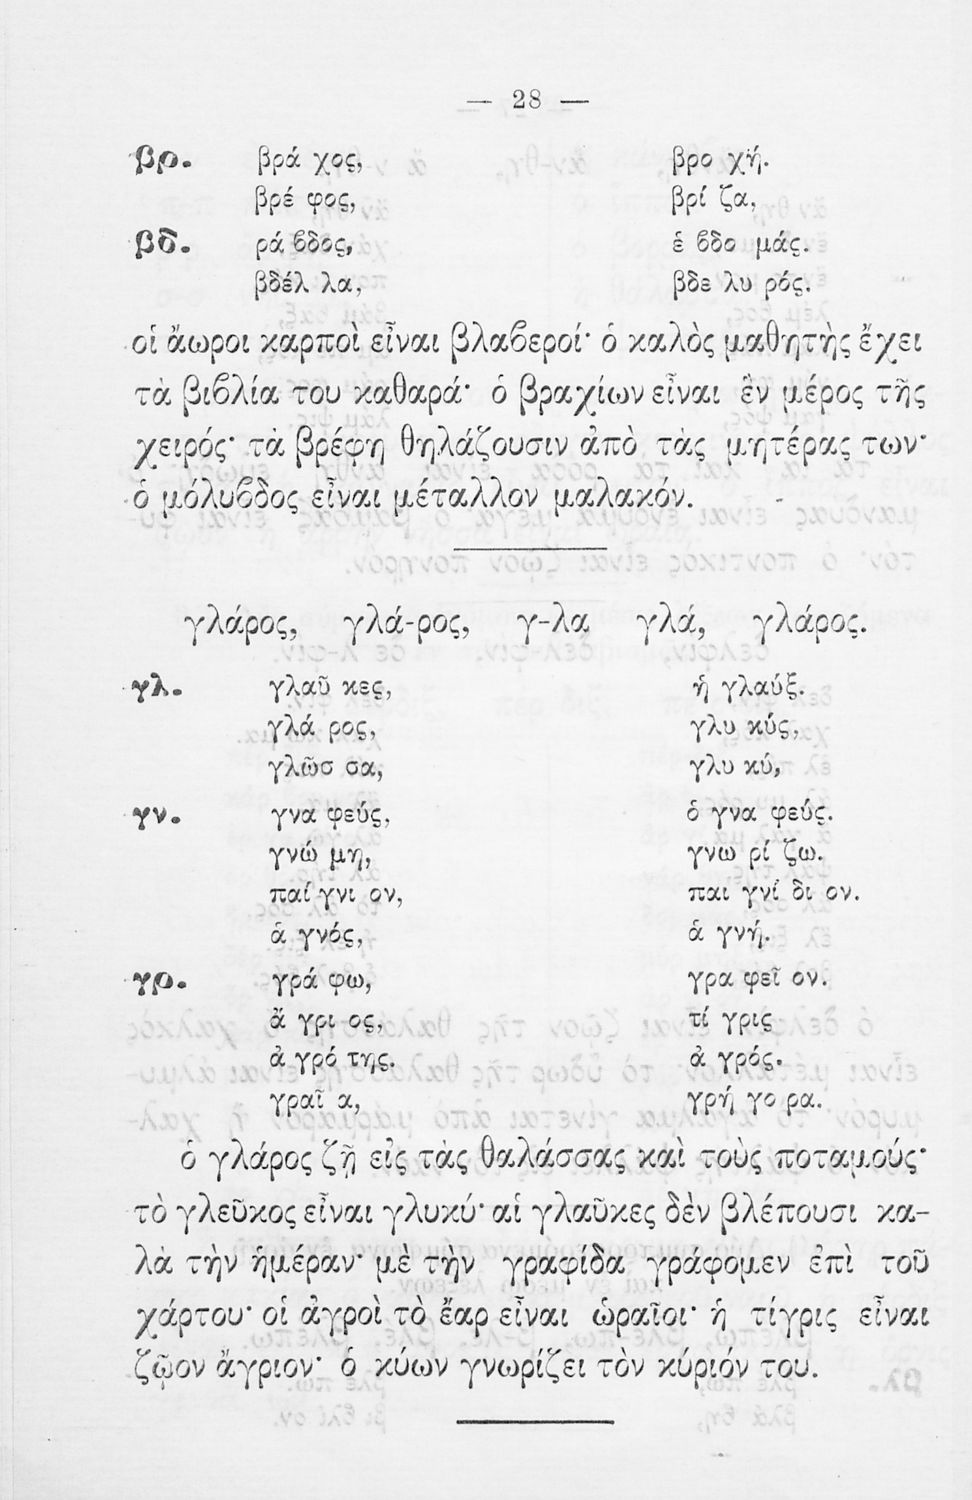 — 28 —
βρ. βρά χος, βρο χή.
βρέ φος, βρί ζα,
βδ. ρά ϐδος, ἑ ϐδο μάς.
βδέλ λα, βδε λυ ρός.
οἱ ἄωροι καρποὶ εἶναι βλαϐεροί· ὁ καλὸς μαθητὴς ἔχει
τὰ βιϐλία του καθαρά· ὁ βραχίων εἶναι ἓν μέρος τῆς
χειρός· τὰ βρέφη θηλάζουσιν ἀπὸ τὰς μητέρας των·
ὁ μόλυϐδος εἶναι μέταλλον μαλακόν.
γλάρος, γλά-ρος, γ-λα γλά, γλάρος.
γλ. γλαῦ κες, ἡ γλαύξ.
γλά ρος, γλυ κύς,
γλῶσ σα, γλυ κύ,
γν. γνα φεύς, ὁ γνα φεύς.
γνώ μη, γνω ρί ζω.
παί γνι ον, παι γνί δι ον.
ἁ γνός, ἁ γνή.
γρ. γρά φω, γρα φεῖ ον.
ἄ γρι ος, τί γρις
ἀ γρό της. ἀ γρός.
γραῖ α, γρή γο ρα.
ὁ γλάρος ζῇ εἰς τὰς θαλάσσας καὶ τοὺς ποταμούς·
τὸ γλεῦκος εἶναι γλυκύ· αἱ γλαῦκες δὲν βλέπουσι κα-
λὰ τὴν ἡμέραν· μὲ τὴν γραφίδα γράφομεν ἐπὶ τοῦ
χάρτου· οἱ ἀγροὶ τὸ ἔαρ εἶναι ὡραῖοι· ἡ τίγρις εἶναι
ζῷον ἄγριον· ὁ κύων γνωρίζει τὸν κύριόν του.